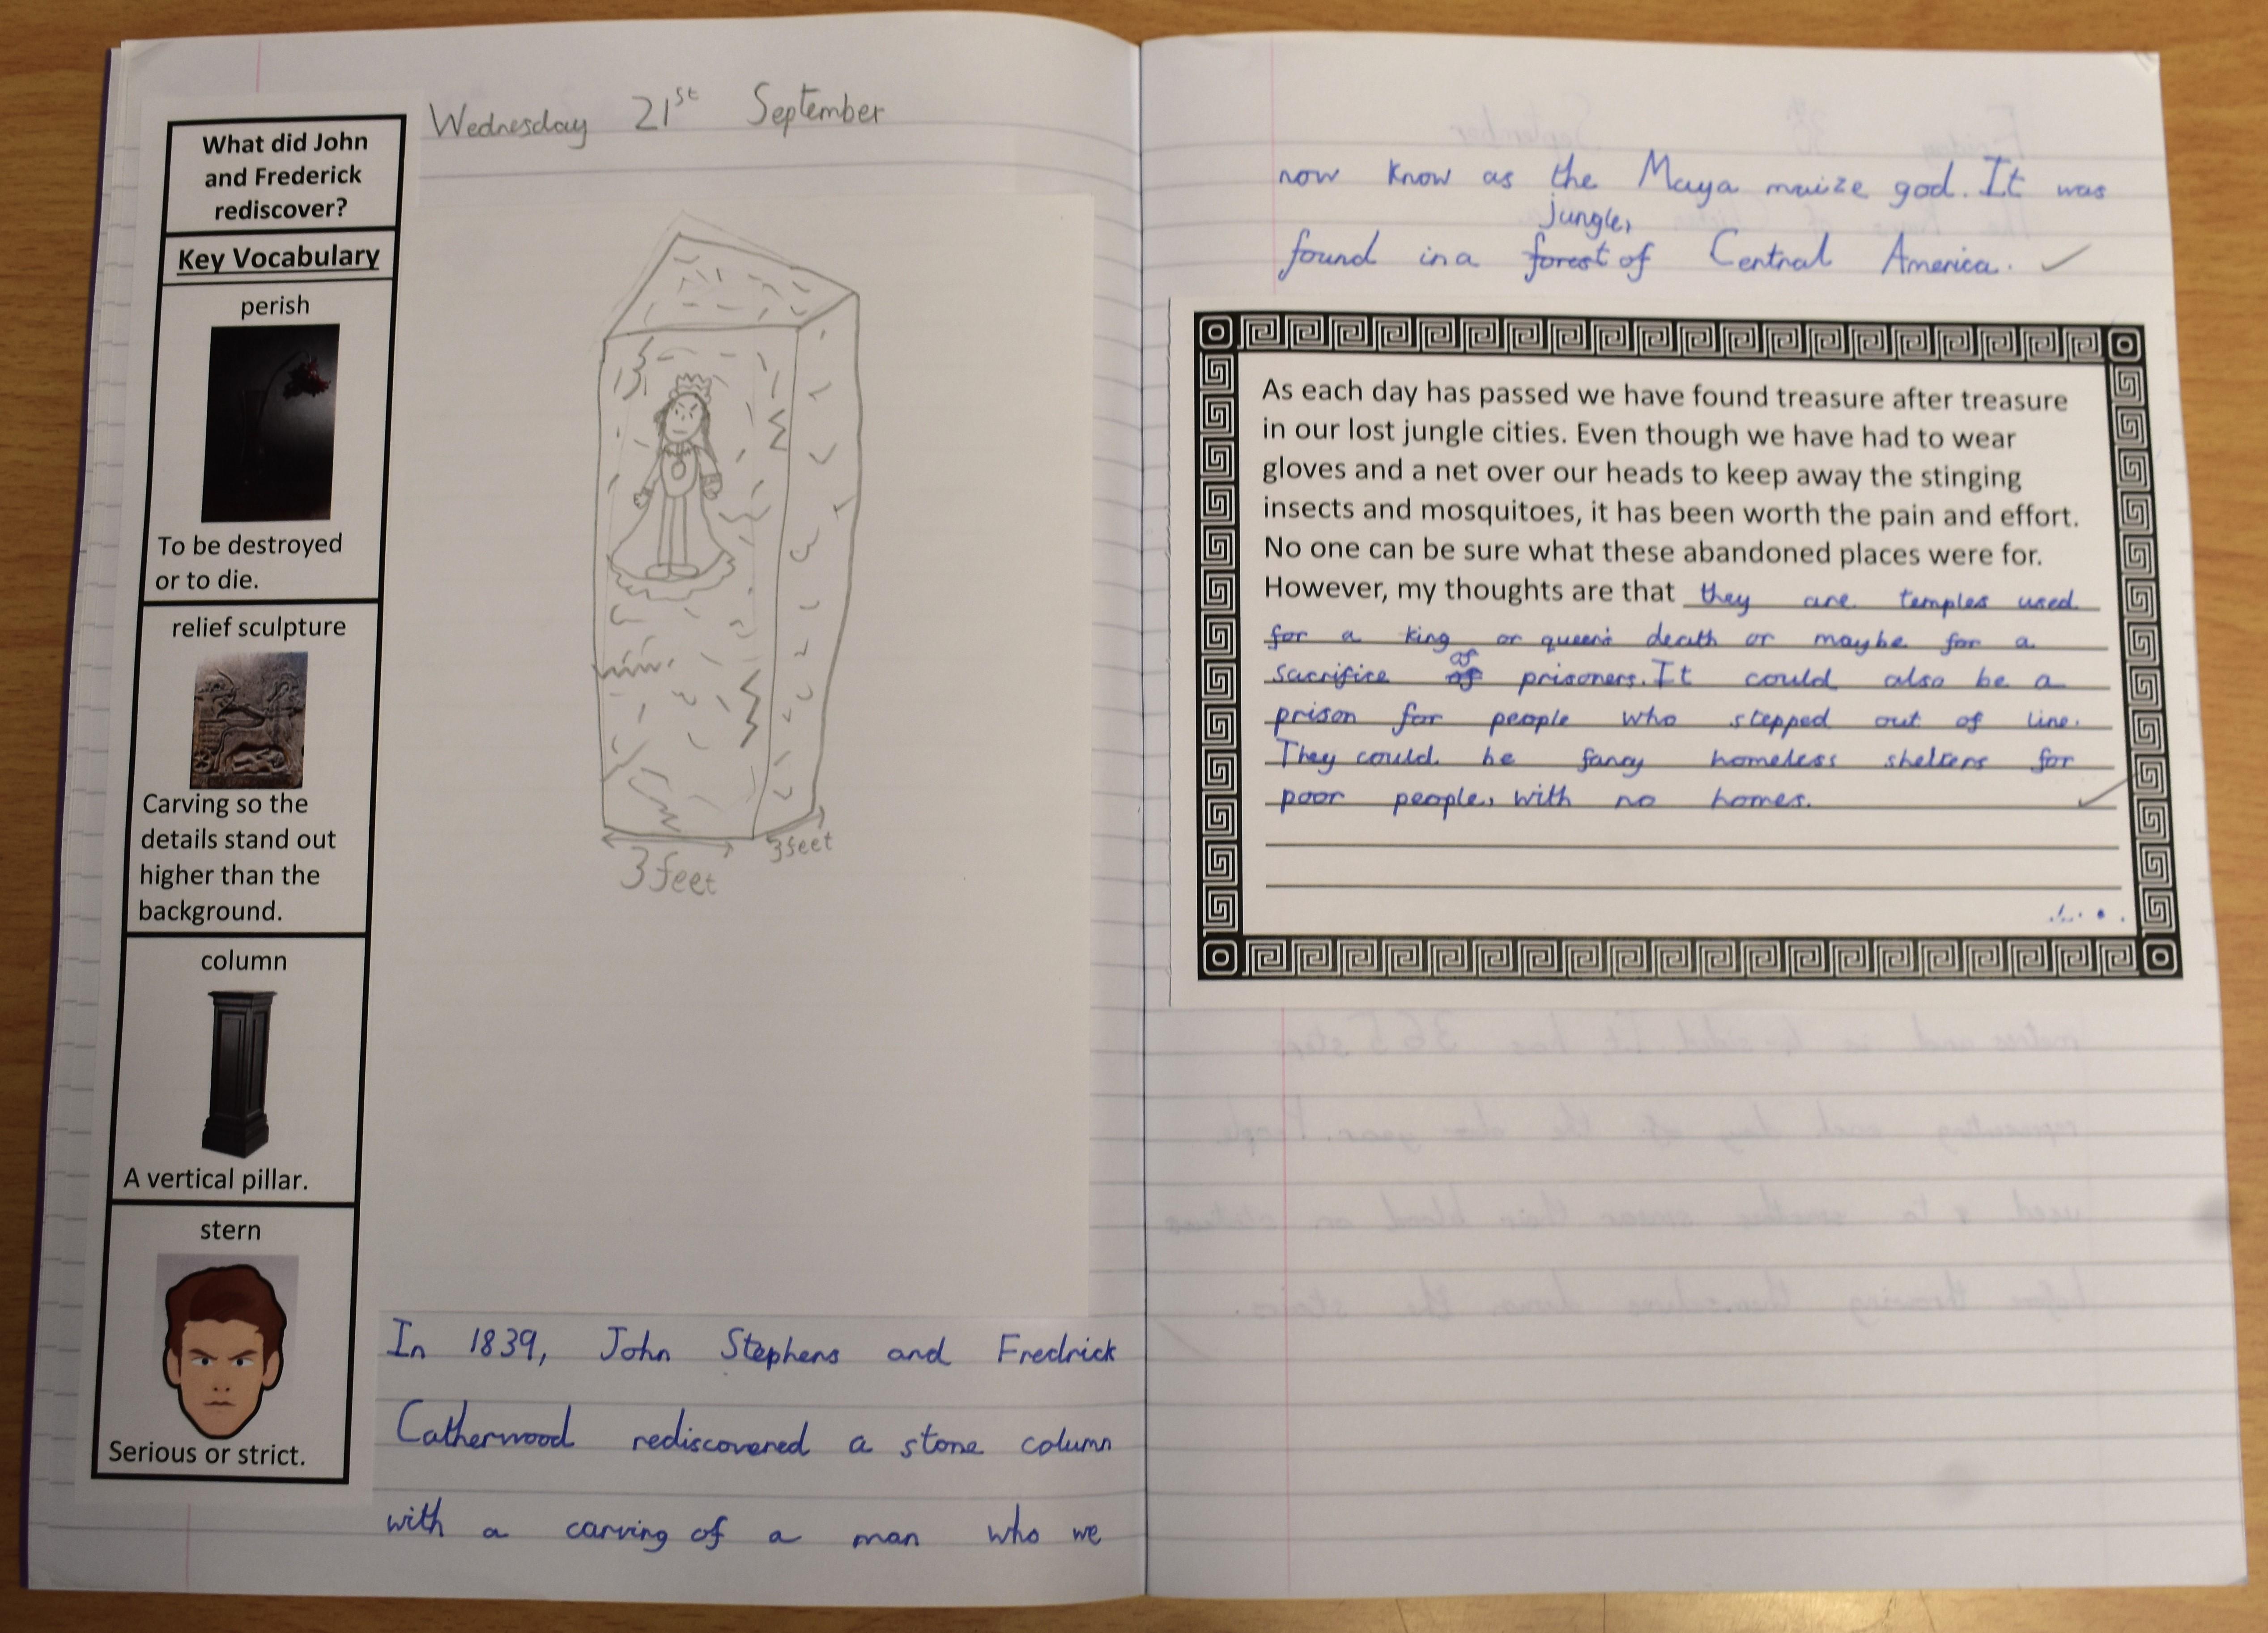 What did John
and Frederick
rediscover?
Key Vocabulary
perish
To be destroyed
or to die.
relief sculpture
Carving so the
details stand out
higher than the
background.
column
A vertical pillar.
stern
Serious or strict.
Wednesday 21st September
3 feet
3 feet
In 1839, John Stephens and Fredrick
Catherwood rediscovered a stone column
with a carving of a man who we
now know as the Maya maize god. It was
jungle,
found in a forest of Central America.
As each day has passed we have found treasure after treasure
in our lost jungle cities. Even though we have had to wear
gloves and a net over our heads to keep away the stinging
insects and mosquitoes, it has been worth the pain and effort.
No one can be sure what these abandoned places were for.
However, my thoughts are that they are temples used
for a king or queen's death or maybe for a
of
sacrifice of prisoners. It could also be a
prison for people who stepped out of line.
They could be fancy homeless shelters for
poor people, with no homes.